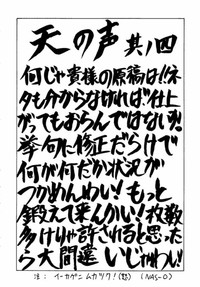 天の声 其ノ四
何じゃ貴様の原稿は!!ネ
タも分からなければ仕上
がってもおらんではないか!!
挙句に修正だらけで
何が何だか状況が
つかめんわい!もっと
鍛えて来んかい!枚数
多けりゃ許されると思った
ら大間違いじゃわい!
注:イーカゲンムカツク!(怒)(NAS-O)